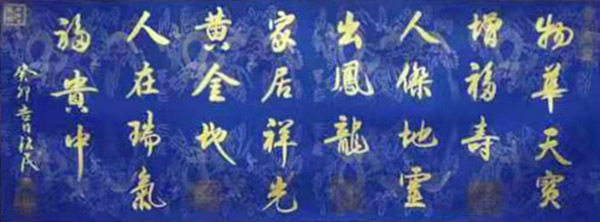 物華天寶
增福寿
人傑地靈
出鳳龍
家居祥光
黄金地
人在瑞氣
福貴中
癸卯吉日